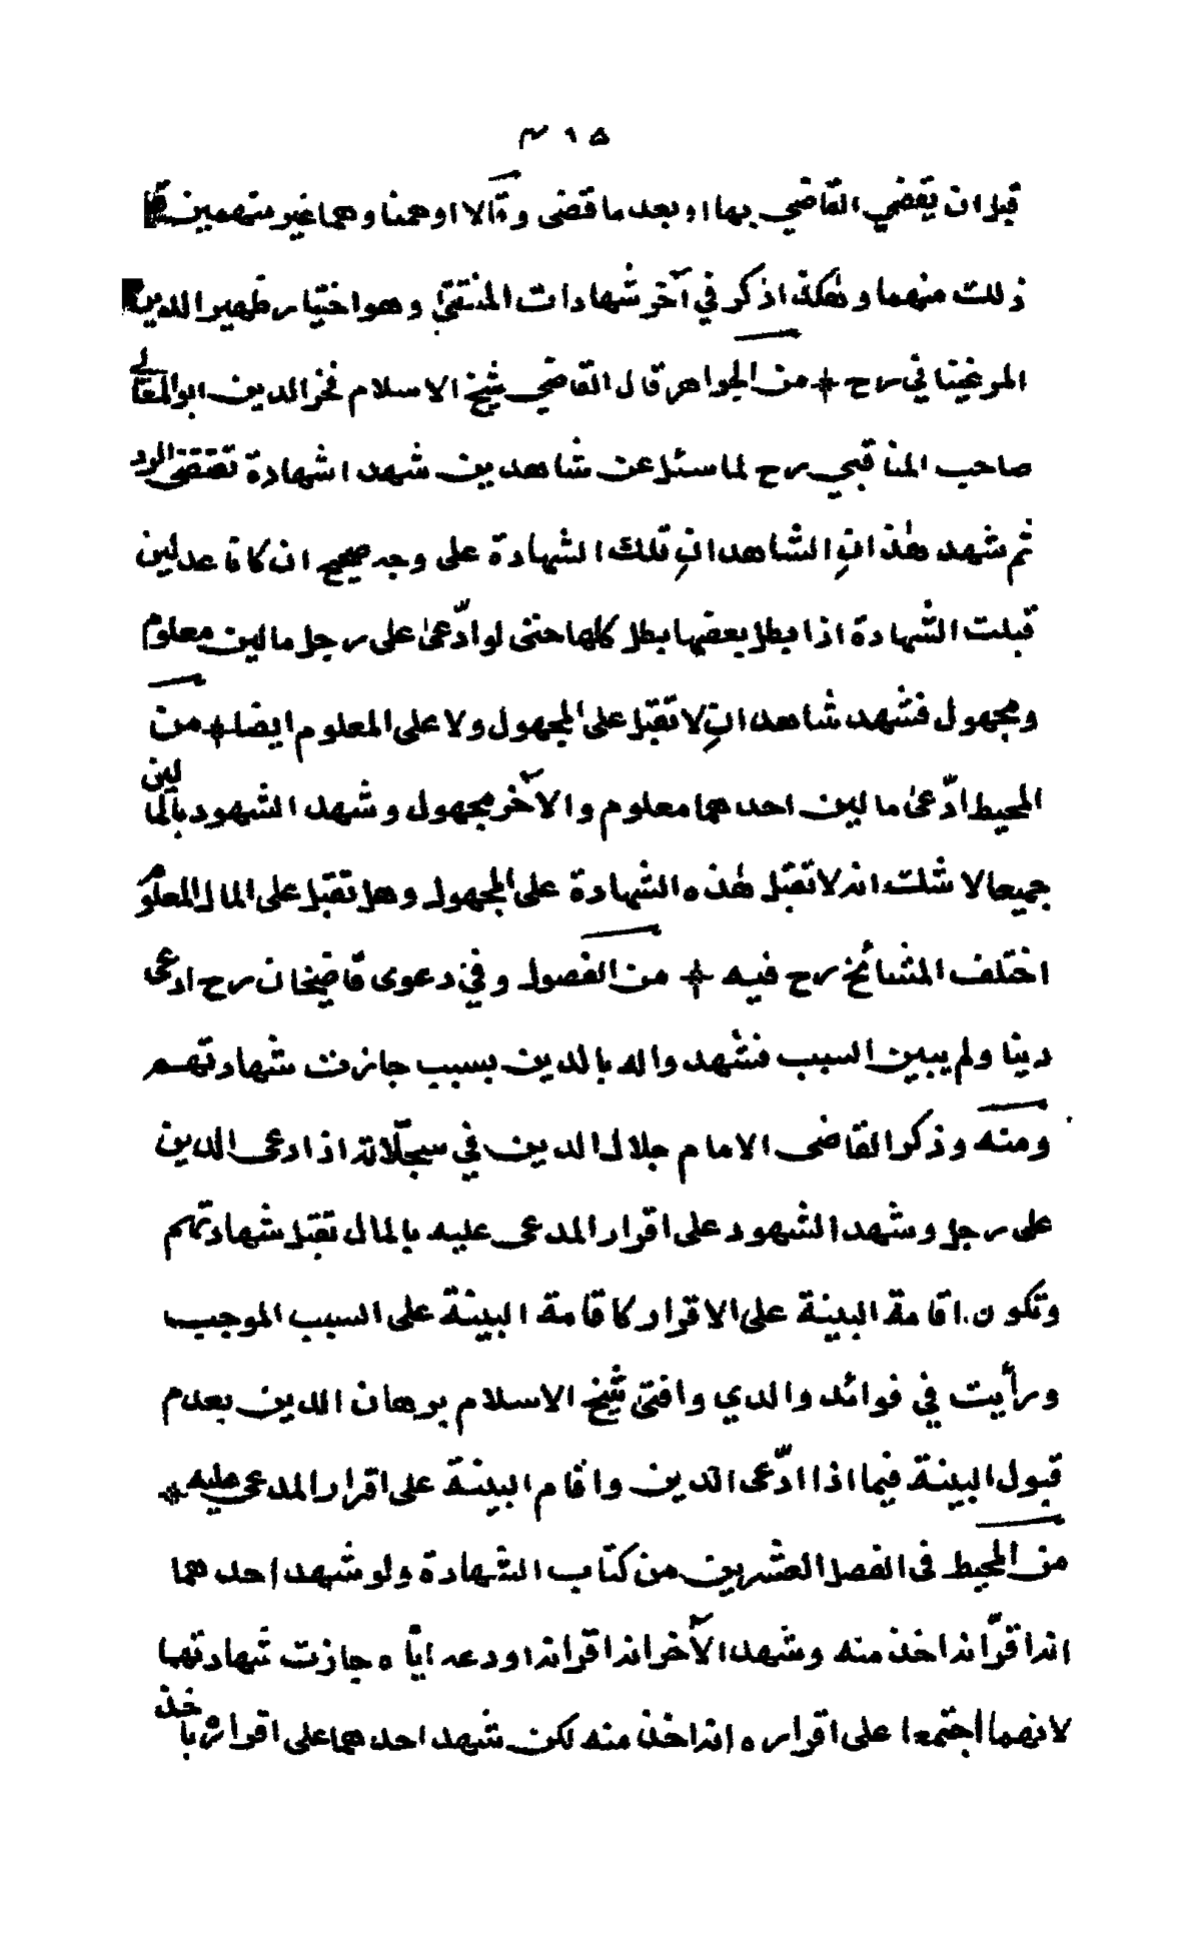 ٣٩٥
قبل ان يقضي القاضي بها او بعد ما قضى وقالا اوهمنا وهما غير متهمين
ذلك منهما وهكذا ذكر في آخر شهادات المنتقى وهو اختيار ظهير الدين
المرغينانى رح + من الجواهر قال القاضي شيخ الاسلام فخر الدين ابو المعالى
صاحب المناقبي رح لما سئل عن شاهدين شهدا شهادة تقتضى الرد
ثم شهد هذانِ الشاهدانِ تلك الشهادة على وجه صحيح ان كانا عدلين
قبلت الشهادة اذا بطل بعضها بطل كلها حتى لو ادّعى على رجل مالين معلوم
ومجهول فشهد شاهدانِ لا تقبل على المجهول ولا على المعلوم ايضا + من
المحيط ادّعى مالين احدهما معلوم والآخر مجهول وشهد الشهود بالمالين
جميعا لا شك انه لا تقبل هذه الشهادة على المجهول وهل تقبل على المال المعلوم
اختلف المشائخ رح فيه + من الفصول وفي دعوى قاضيخان رح ادعى
دينا ولم يبين السبب فشهدوا له بالدين بسبب جازت شهادتهم
ومنه وذكر القاضى الامام جلال الدين في سجلّاته اذا ادعى الدين
على رجل وشهد الشهود على اقرار المدعى عليه بالمال تقبل شهادتهم
وتكون اقامة البينة على الاقرار كاقامة البينة على السبب الموجب
ورأيت في فوائد والدي وافتى شيخ الاسلام برهان الدين بعدم
قبول البينة فيما اذا ادّعى الدين واقام البينة على اقرار المدعى عليه +
من المحيط فى الفصل العشرين من كتاب الشهادة ولو شهد احدهما
انه اقرّ انه اخذ منه وشهد الآخر انه اقر انه اودعه ايّاه جازت شهادتهما
لانهما اجتمعا على اقراره انه اخذ منه لكن شهد احدهما على اقراره باخذ